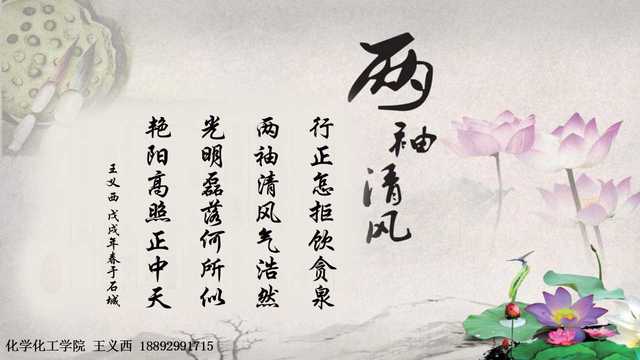 两袖清风
行正怎拒饮贪泉
两袖清风气浩然
光明磊落何所似
艳阳高照正中天
王义西 戊戌年春于石城
化学化工学院 王义西 18892991715